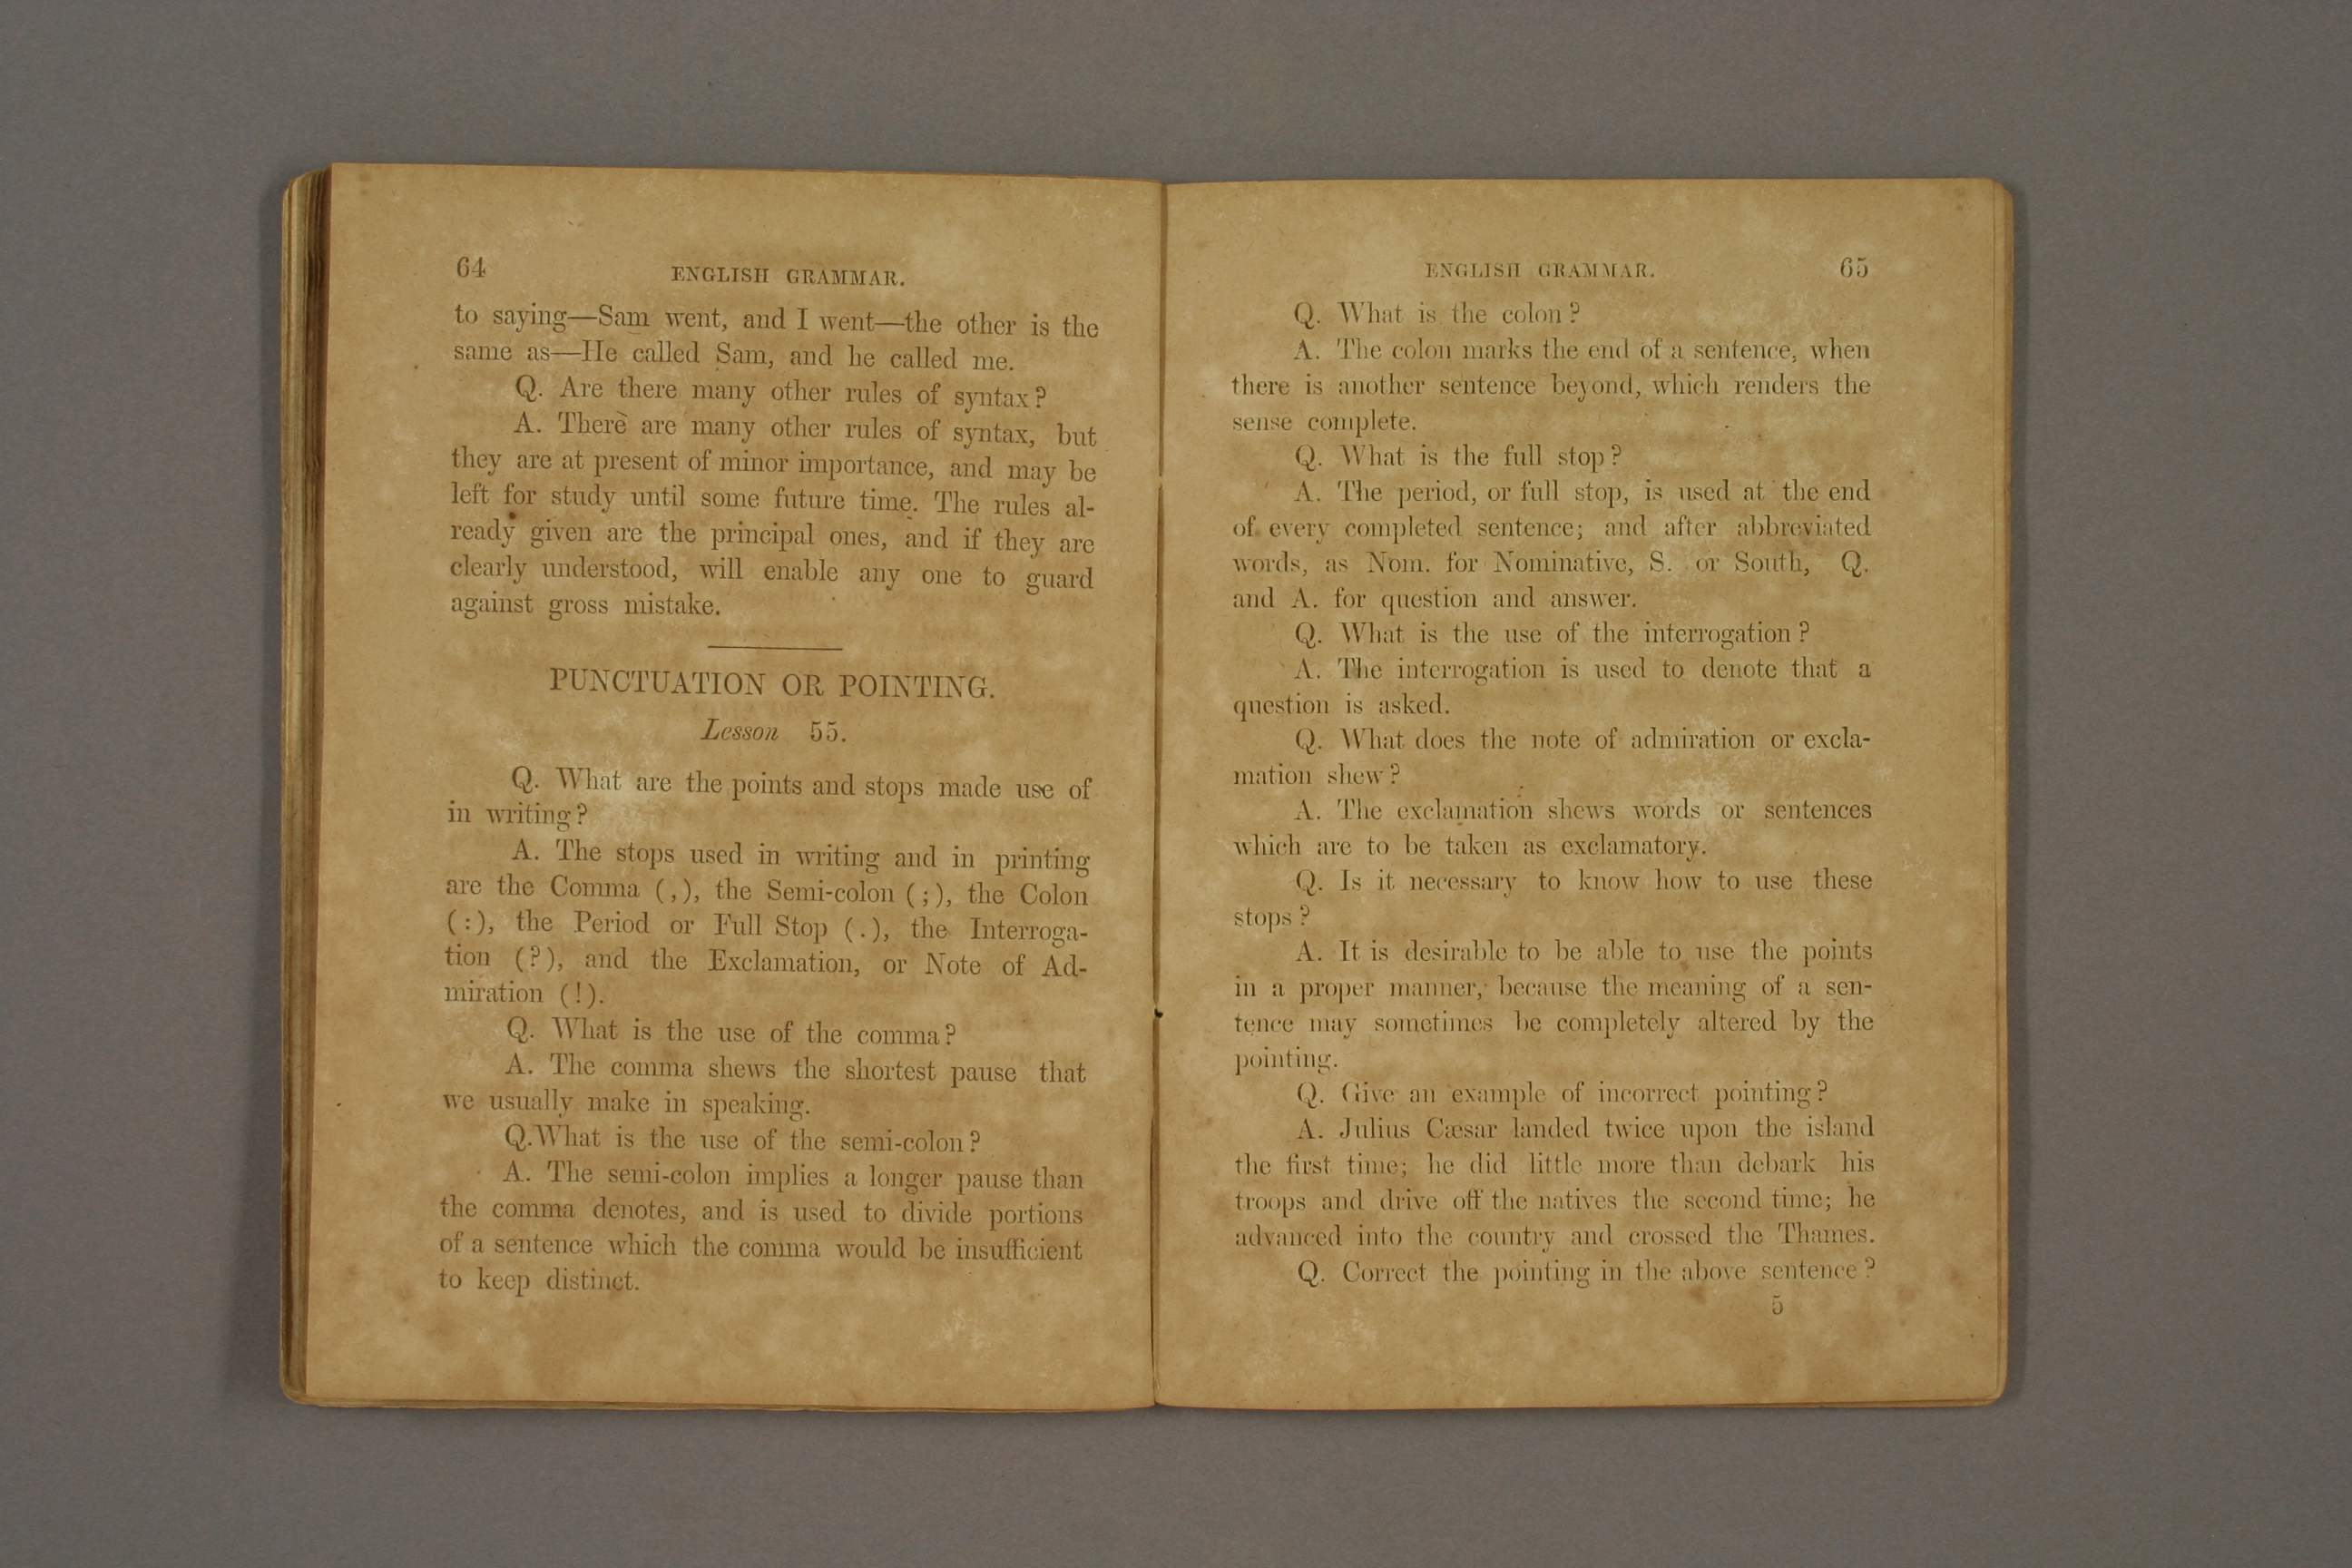 64
ENGLISH GRAMMAR.
to saying—Sam went, and I went—the other is the
same as—He called Sam, and he called me.
Q. Are there many other rules of syntax?
A. There are many other rules of syntax, but
they are at present of minor importance, and may be
left for study until some future time. The rules al-
ready given are the principal ones, and if they are
clearly understood, will enable any one to guard
against gross mistake.
PUNCTUATION OR POINTING.
Lesson 55.
Q. What are the points and stops made use of
in writing?
A. The stops used in writing and in printing
are the Comma (,), the Semi-colon (;), the Colon
(:), the Period or Full Stop (.), the Interroga-
tion (?), and the Exclamation, or Note of Ad-
miration (!).
Q. What is the use of the comma?
A. The comma shews the shortest pause that
we usually make in speaking.
Q.What is the use of the semi-colon?
A. The semi-colon implies a longer pause than
the comma denotes, and is used to divide portions
of a sentence which the comma would be insufficient
to keep distinct.
ENGLISH GRAMMAR.
65
Q. What is the colon?
A. The colon marks the end of a sentence, when
there is another sentence beyond, which renders the
sense complete.
Q. What is the full stop?
A. The period, or full stop, is used at the end
of every completed sentence; and after abbreviated
words, as Nom. for Nominative, S. or South, Q.
and A. for question and answer.
Q. What is the use of the interrogation?
A. The interrogation is used to denote that a
question is asked.
Q. What does the note of admiration or excla-
mation shew?
A. The exclamation shews words or sentences
which are to be taken as exclamatory.
Q. Is it necessary to know how to use these
stops?
A. It is desirable to be able to use the points
in a proper manner, because the meaning of a sen-
tence may sometimes be completely altered by the
pointing.
Q. Give an example of incorrect pointing?
A. Julius Cæsar landed twice upon the island
the first time; he did little more than debark his
troops and drive off the natives the second time; he
advanced into the country and crossed the Thames.
Q. Correct the pointing in the above sentence?
5